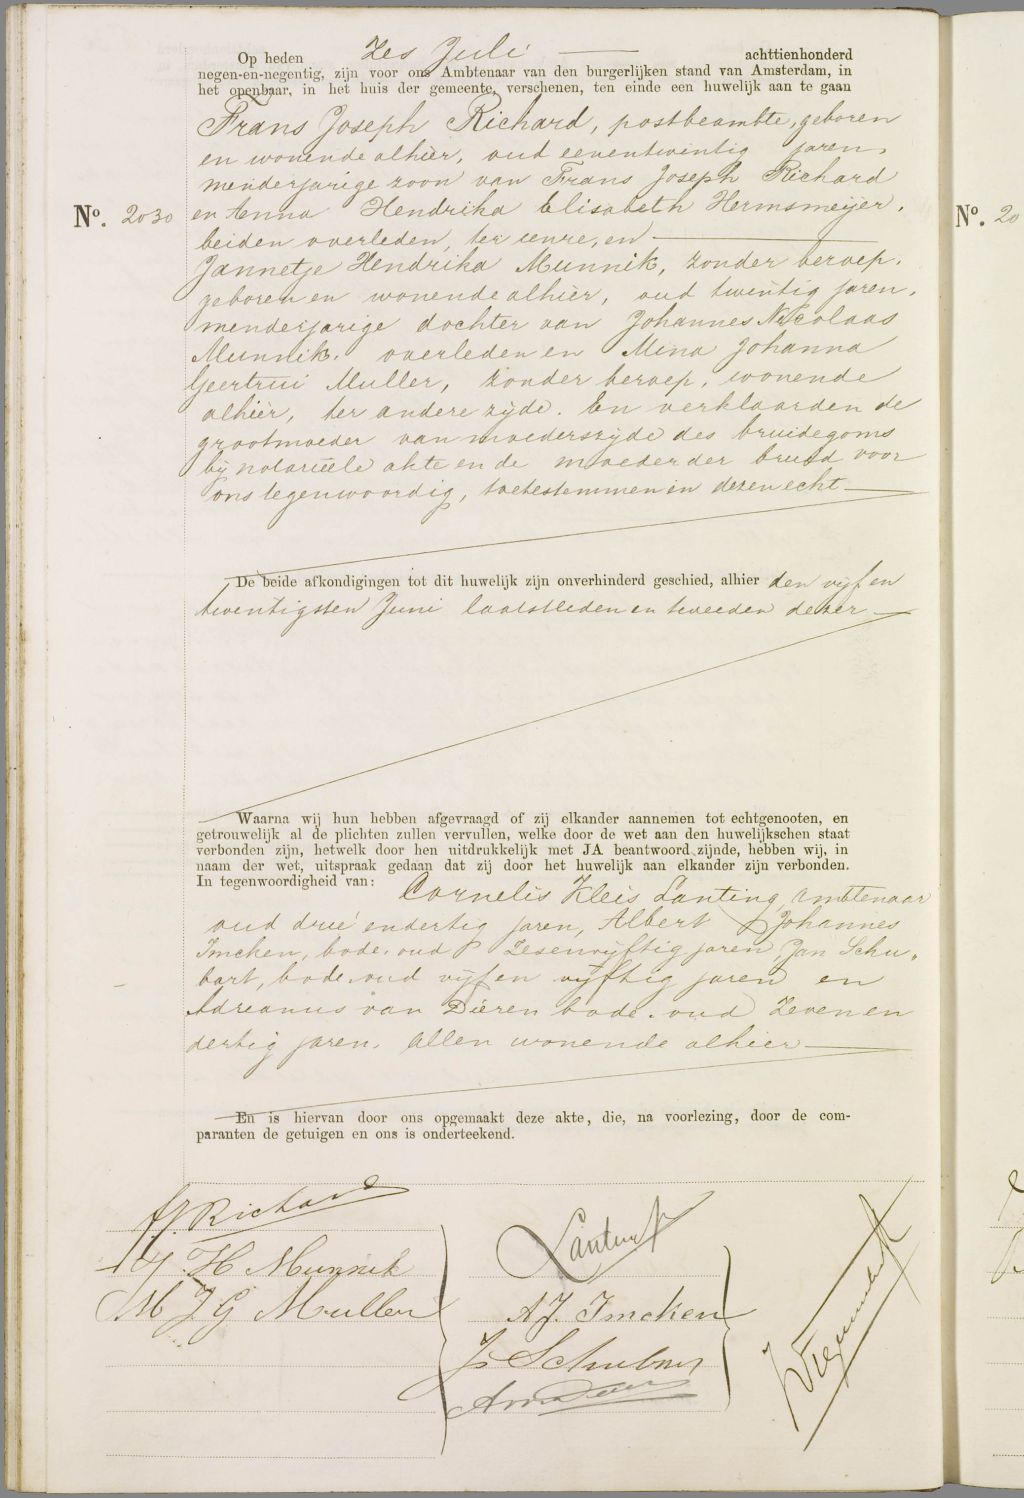 Op heden Zes Juli achttienhonderd
negen-en-negentig, zijn voor ons Ambtenaar van den burgerlijken stand van Amsterdam, in
het openbaar, in het huis der gemeente, verschenen, ten einde een huwelijk aan te gaan
Frans Joseph Richard, postbeambte, geboren
en wonende alhier, oud eenentwintig jaren,
menderjarige zoon van Frans Joseph Richard
No. 2030 en Anna Hendrika Elisabeth Hermsmeijer,
No. 20
beiden overleden, ter eenre, en
Jannetje Hendrika Munnik, zonder beroep,
geboren en wonende alhier, oud twintig jaren,
menderjarige dochter van Johannes Nicolaas
Munnik, overleden en Mina Johanna
Geertrui Muller, zonder beroep, wonende
alhier, ter andere zijde. En verklaarden de
grootmoeder van moederszijde des bruidegoms
bij notariëele akte en de moeder der bruid voor
ons tegenwoordig, toetestemmen in dezen echt
De beide afkondigingen tot dit huwelijk zijn onverhinderd geschied, alhier den vijf en
twentigsten Juni laatstleden en tweeden dezer
Waarna wij hun hebben afgevraagd of zij elkander aannemen tot echtgenooten, en
getrouwelijk al de plichten zullen vervullen, welke door de wet aan den huwelijkschen staat
verbonden zijn, hetwelk door hen uitdrukkelijk met JA beantwoord zijnde, hebben wij, in
naam der wet, uitspraak gedaan dat zij door het huwelijk aan elkander zijn verbonden.
In tegenwoordigheid van: Cornelis Kleis Lanting, ambtenaar
oud drie endertig jaren, Albert Johannes
Imcken, bode, oud Zesenvijftig jaren, Jan Schu„
bart, bode, oud vijf en vijftig jaren en
Adrianus van Dieren bode, oud Zevenen
dertig jaren, allen wonende alhier
En is hiervan door ons opgemaakt deze akte, die, na voorlezing, door de com-
paranten de getuigen en ons is onderteekend.
fJ Richard
J. H Munnik
M J G Muller
Lanting
AJ. Imcken
J. Schubart